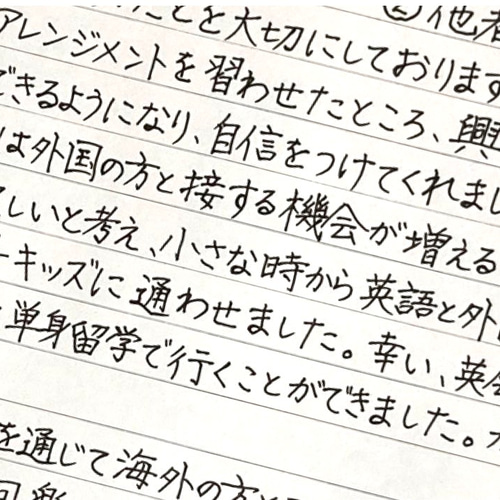 ことを大切にしております
②他者
アレンジメントを習わせたところ、興
できるようになり、自信をつけてくれまし
は外国の方と接する機会が増える
しいと考え、小さな時から英語と外
キッズに通わせました。幸い、英会
単身留学で行くことができました。
を通じて海外の方と